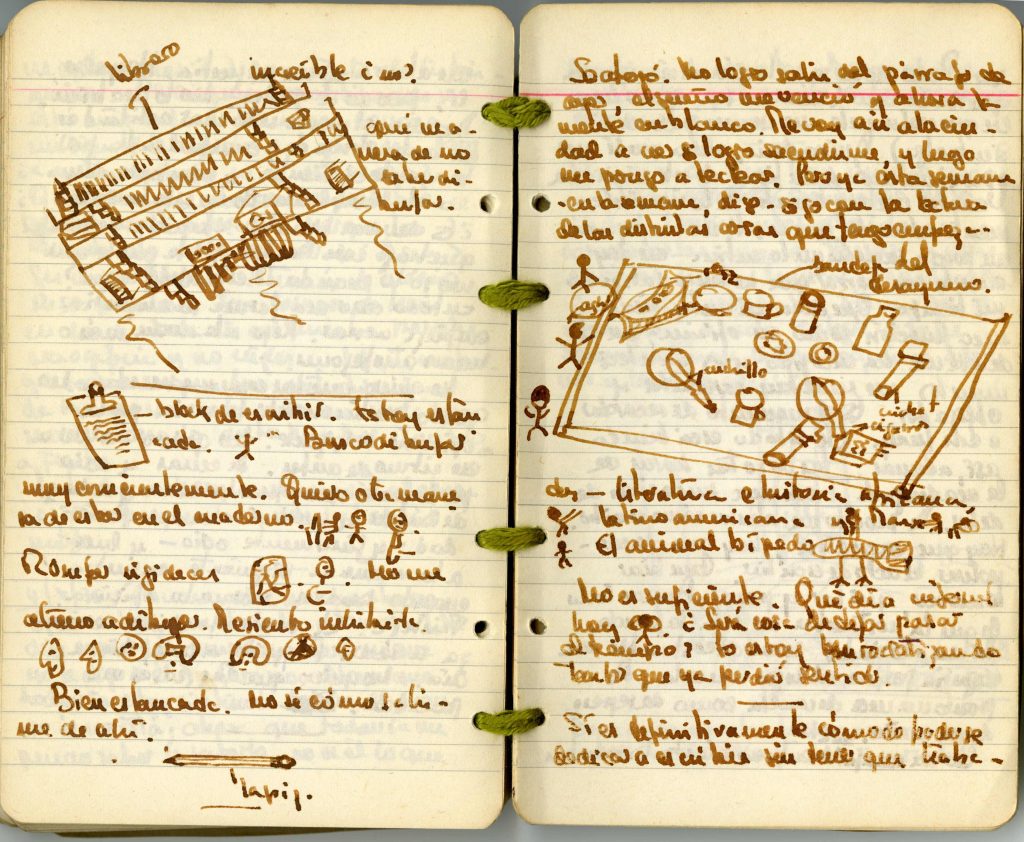 librero
increíble ¿no?
qué ma-
nera de no
saber di-
bujar.
block de escribir. Estoy estan
cada. Busco dibujar
muy conscientemente. Quiero otra mane
ra de estar en el cuaderno.
Romper rigideces No me
atrevo a dibujar. Me siento inhibida.
Bien estancada. No sé cómo salir-
me de ahí.
lapiz.
Se atoró. No logro salir del párrafo de
ayer, el sueño me venció y ahora la
mente en blanco. Me voy a ir a la ciu-
dad a ver si logro sacudirme, y luego
me pongo a teclear. Pero ya esta semana
-en la semana, digo- sigo con la lectura
de las distintas cosas que tengo empeza-
del
desayuno.
cuchillo
cigarros
das — literatura e historia africana,
latinoamericana y Marx
El animal bípedo
No es suficiente. Qué día infernal
hoy ¿Será cosa de dejar pasar
el tiempo? Lo estoy burocratizando
tanto que ya perdió sentido.
Sí es definitivamente cómodo poderse
dedicar a escribir sin tener que traba-